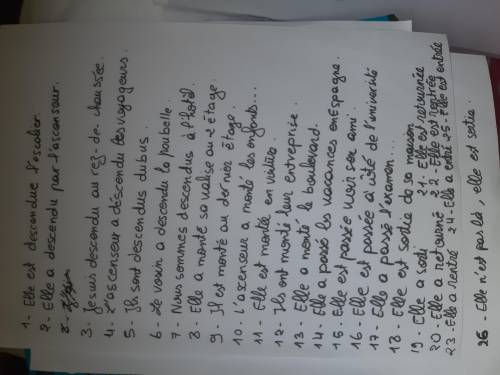 1- Elle est descendue l'escalier
2- Elle a descendu par l'ascenseur.
3- Je suis descendu au rez-de-chaussée.
4- L'ascenseur a déscendu les voyageurs.
5- Ils sont descendus du bus.
6- Le voisin a descendu la poubelle.
7- Nous sommes descendus à l'hôtel.
8- Elle a monté sa valise au 2 étage.
9- Il est monté au dernier étage.
10- L'ascenseur a monté les enfants...
11- Elle est montée en voiture
12- Ils ont monté leur entreprise.
13- Elle a monté le boulevard.
14- Elle a passé les vacances en Espagne.
15- Elle est passée voir son ami.
16- Elle est passée à côté de l'université
17- Elle a passé l'examen...
18- Elle est sortie de sa maison.
19- Elle a sorti 21- Elle est retournée
20- Elle a retourné 22- Elle est rentrée
23- Elle a rentré 24- Elle a entré 25- Elle est entrée
26- Elle n'est pas là, elle est sortie.